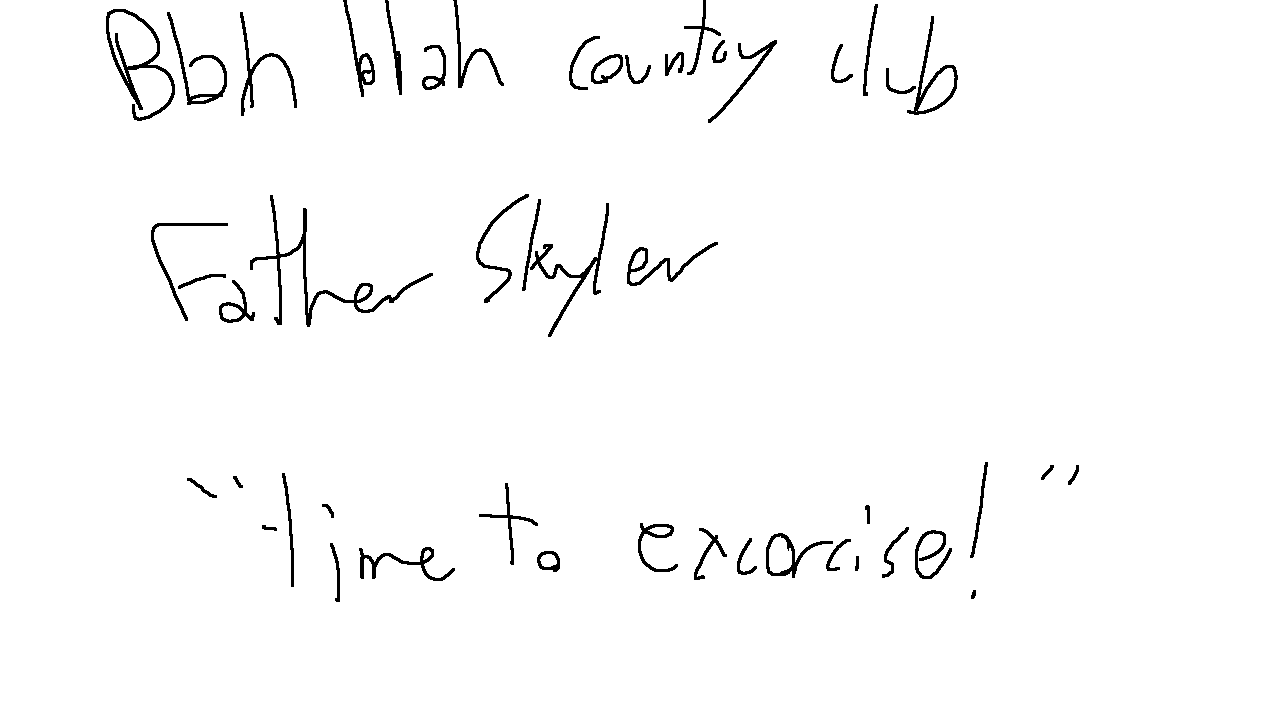 Blah blah country club
Father Skyler
"time to excorcise!"